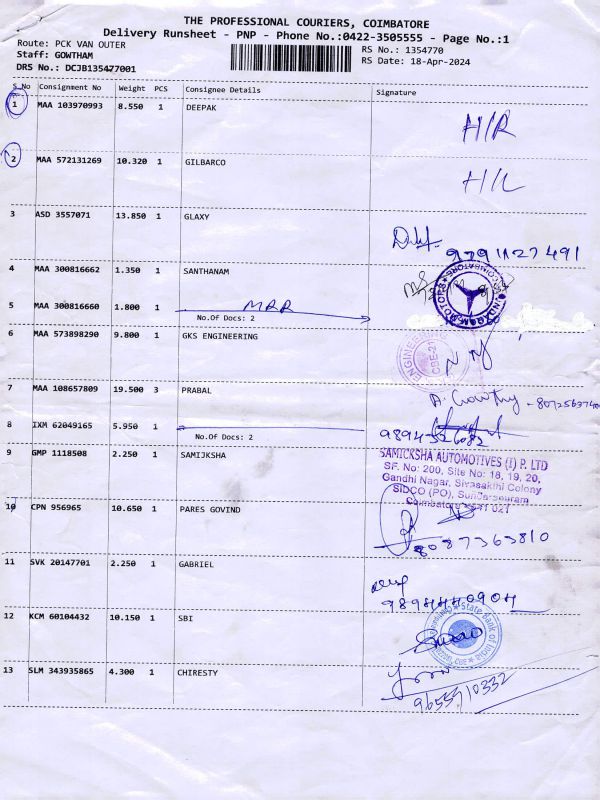 THE PROFESSIONAL COURIERS, COIMBATORE
Delivery Runsheet - PNP - Phone No.:0422-3505555 - Page No.:1
Route: PCK VAN OUTER
Staff: GOWTHAM
DRS No.: DCJB135477001
RS No.: 1354770
RS Date: 18-Apr-2024
S.No Consignment No Weight PCS Consignee Details Signature
1 MAA 103970993 8.550 1 DEEPAK H/R
2 MAA 572131269 10.320 1 GILBARCO H/L
3 ASD 3557071 13.850 1 GLAXY
9791127491
4 MAA 300816662 1.350 1 SANTHANAM
5 MAA 300816660 1.800 1 MRR
No.Of Docs: 2
6 MAA 573898290 9.800 1 GKS ENGINEERING
ENGINEERING
CBE-21
7 MAA 108657809 19.500 3 PRABAL
8 IXM 62049165 5.950 1
No.Of Docs: 2
9894526082
9 GMP 1118508 2.250 1 SAMIJKSHA
SAMICKSHA AUTOMOTIVES (I) P. LTD
SF. No: 200, Site No: 18, 19, 20,
Gandhi Nagar, Sivasakthi Colony
SIDCO (PO), Sundarapuram
Coimbatore - 641 021
10 CPN 956965 10.650 1 PARES GOVIND
8087363810
11 SVK 20147701 2.250 1 GABRIEL
9894440904
12 KCM 60104432 10.150 1 SBI
State Bank of India
13 SLM 343935865 4.300 1 CHIRESTY
9655910332